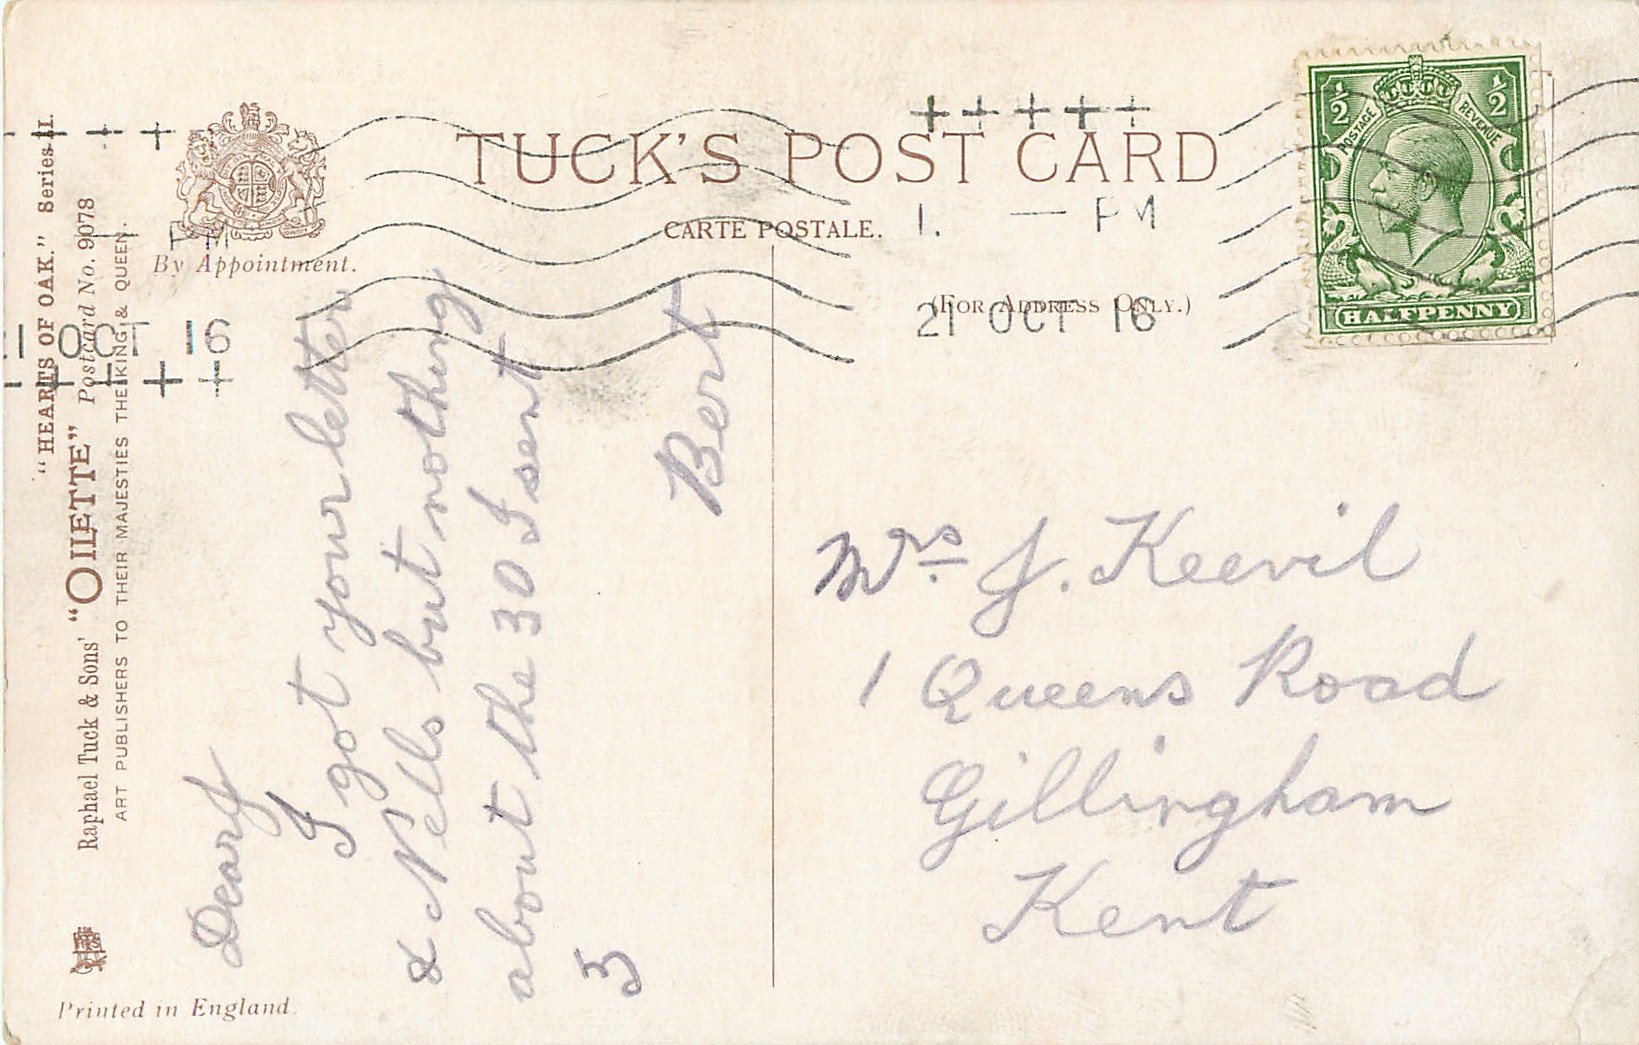 "HEARTS OF OAK." Series II.
Raphael Tuck & Sons' "OILETTE" Postcard No. 9078
ART PUBLISHERS TO THEIR MAJESTIES THE KING & QUEEN.
By Appointment.
Printed in England.
TUCK'S POST CARD
CARTE POSTALE.
(FOR ADDRESS ONLY.)
1. — PM
21 OCT 16
PM
21 OCT 16
POSTAGE REVENUE
½ ½
HALFPENNY
Dear J
I got your letter
& Nells but nothing
about the 30 I sent
5
Bert
Mrs J. Keevil
1 Queens Road
Gillingham
Kent